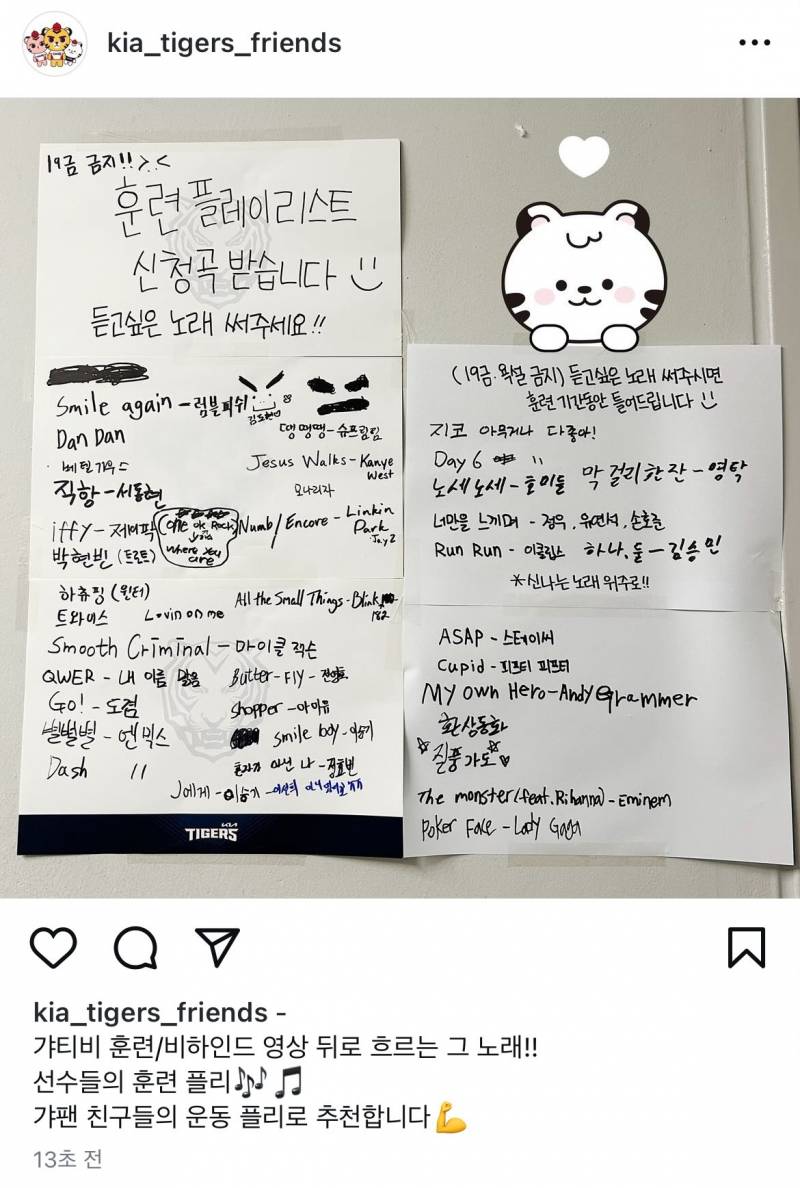 kia_tigers_friends
19금 금지!! >.<
훈련 플레이리스트
신청곡 받습니다
듣고싶은 노래 써주세요!!
Smile again - 럼블피쉬
김도현
Dan Dan
땡땡땡 - 슈프림팀
베텔기우스
Jesus Walks - Kanye West
직항 - 서동현
모나리자
iffy - 제이팍
one ok Rock
where you are
Numb/Encore - Linkin Park
Jay Z
박현빈 (트로트)
하츄핑 (윈터)
All the Small Things - Blink 182
트와이스
Lovin on me
Smooth Criminal - 마이클 잭슨
QWER - 내 이름 맑음
Butter-Fly - 전영호
Go! - 도겸
shopper - 아이유
별별별 - 엔믹스
smile boy - 이승기
Dash "
혼자가 아닌 나 -
J에게 - 이승기 -
KIA
TIGERS
(19금·욕설 금지) 듣고싶은 노래 써주시면
훈련 기간동안 틀어드립니다
지코 아무거나 다좋아!
Day6 "
노세노세 - 호이들
막걸리 한잔 - 영탁
너만을 느끼며 - 정우, 유연석, 손호준
Run Run - 이클립스
하나, 둘 - 김승민
*신나는 노래 위주로!!
ASAP - 스테이씨
Cupid - 피프티 피프티
My own Hero - Andy Grammer
환상동화
질풍가도
The monster (feat. Rihanna) - Eminem
Poker Face - Lady Gaga
kia_tigers_friends -
갸티비 훈련/비하인드 영상 뒤로 흐르는 그 노래!!
선수들의 훈련 플리🎶🎵
갸팬 친구들의 운동 플리로 추천합니다💪
13초 전